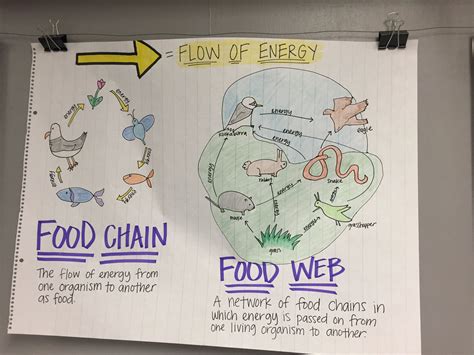 = FLOW OF ENERGY
energy
energy
energy
energy
energy
kookaburra
energy
energy
energy
eagle
energy
rabbit
energy
snake
energy
mouse
energy
energy
grasshopper
grass
FOOD CHAIN
The flow of energy from
one organism to another
as food.
FOOD WEB
A network of food chains in
which energy is passed on from
one living organism to another.